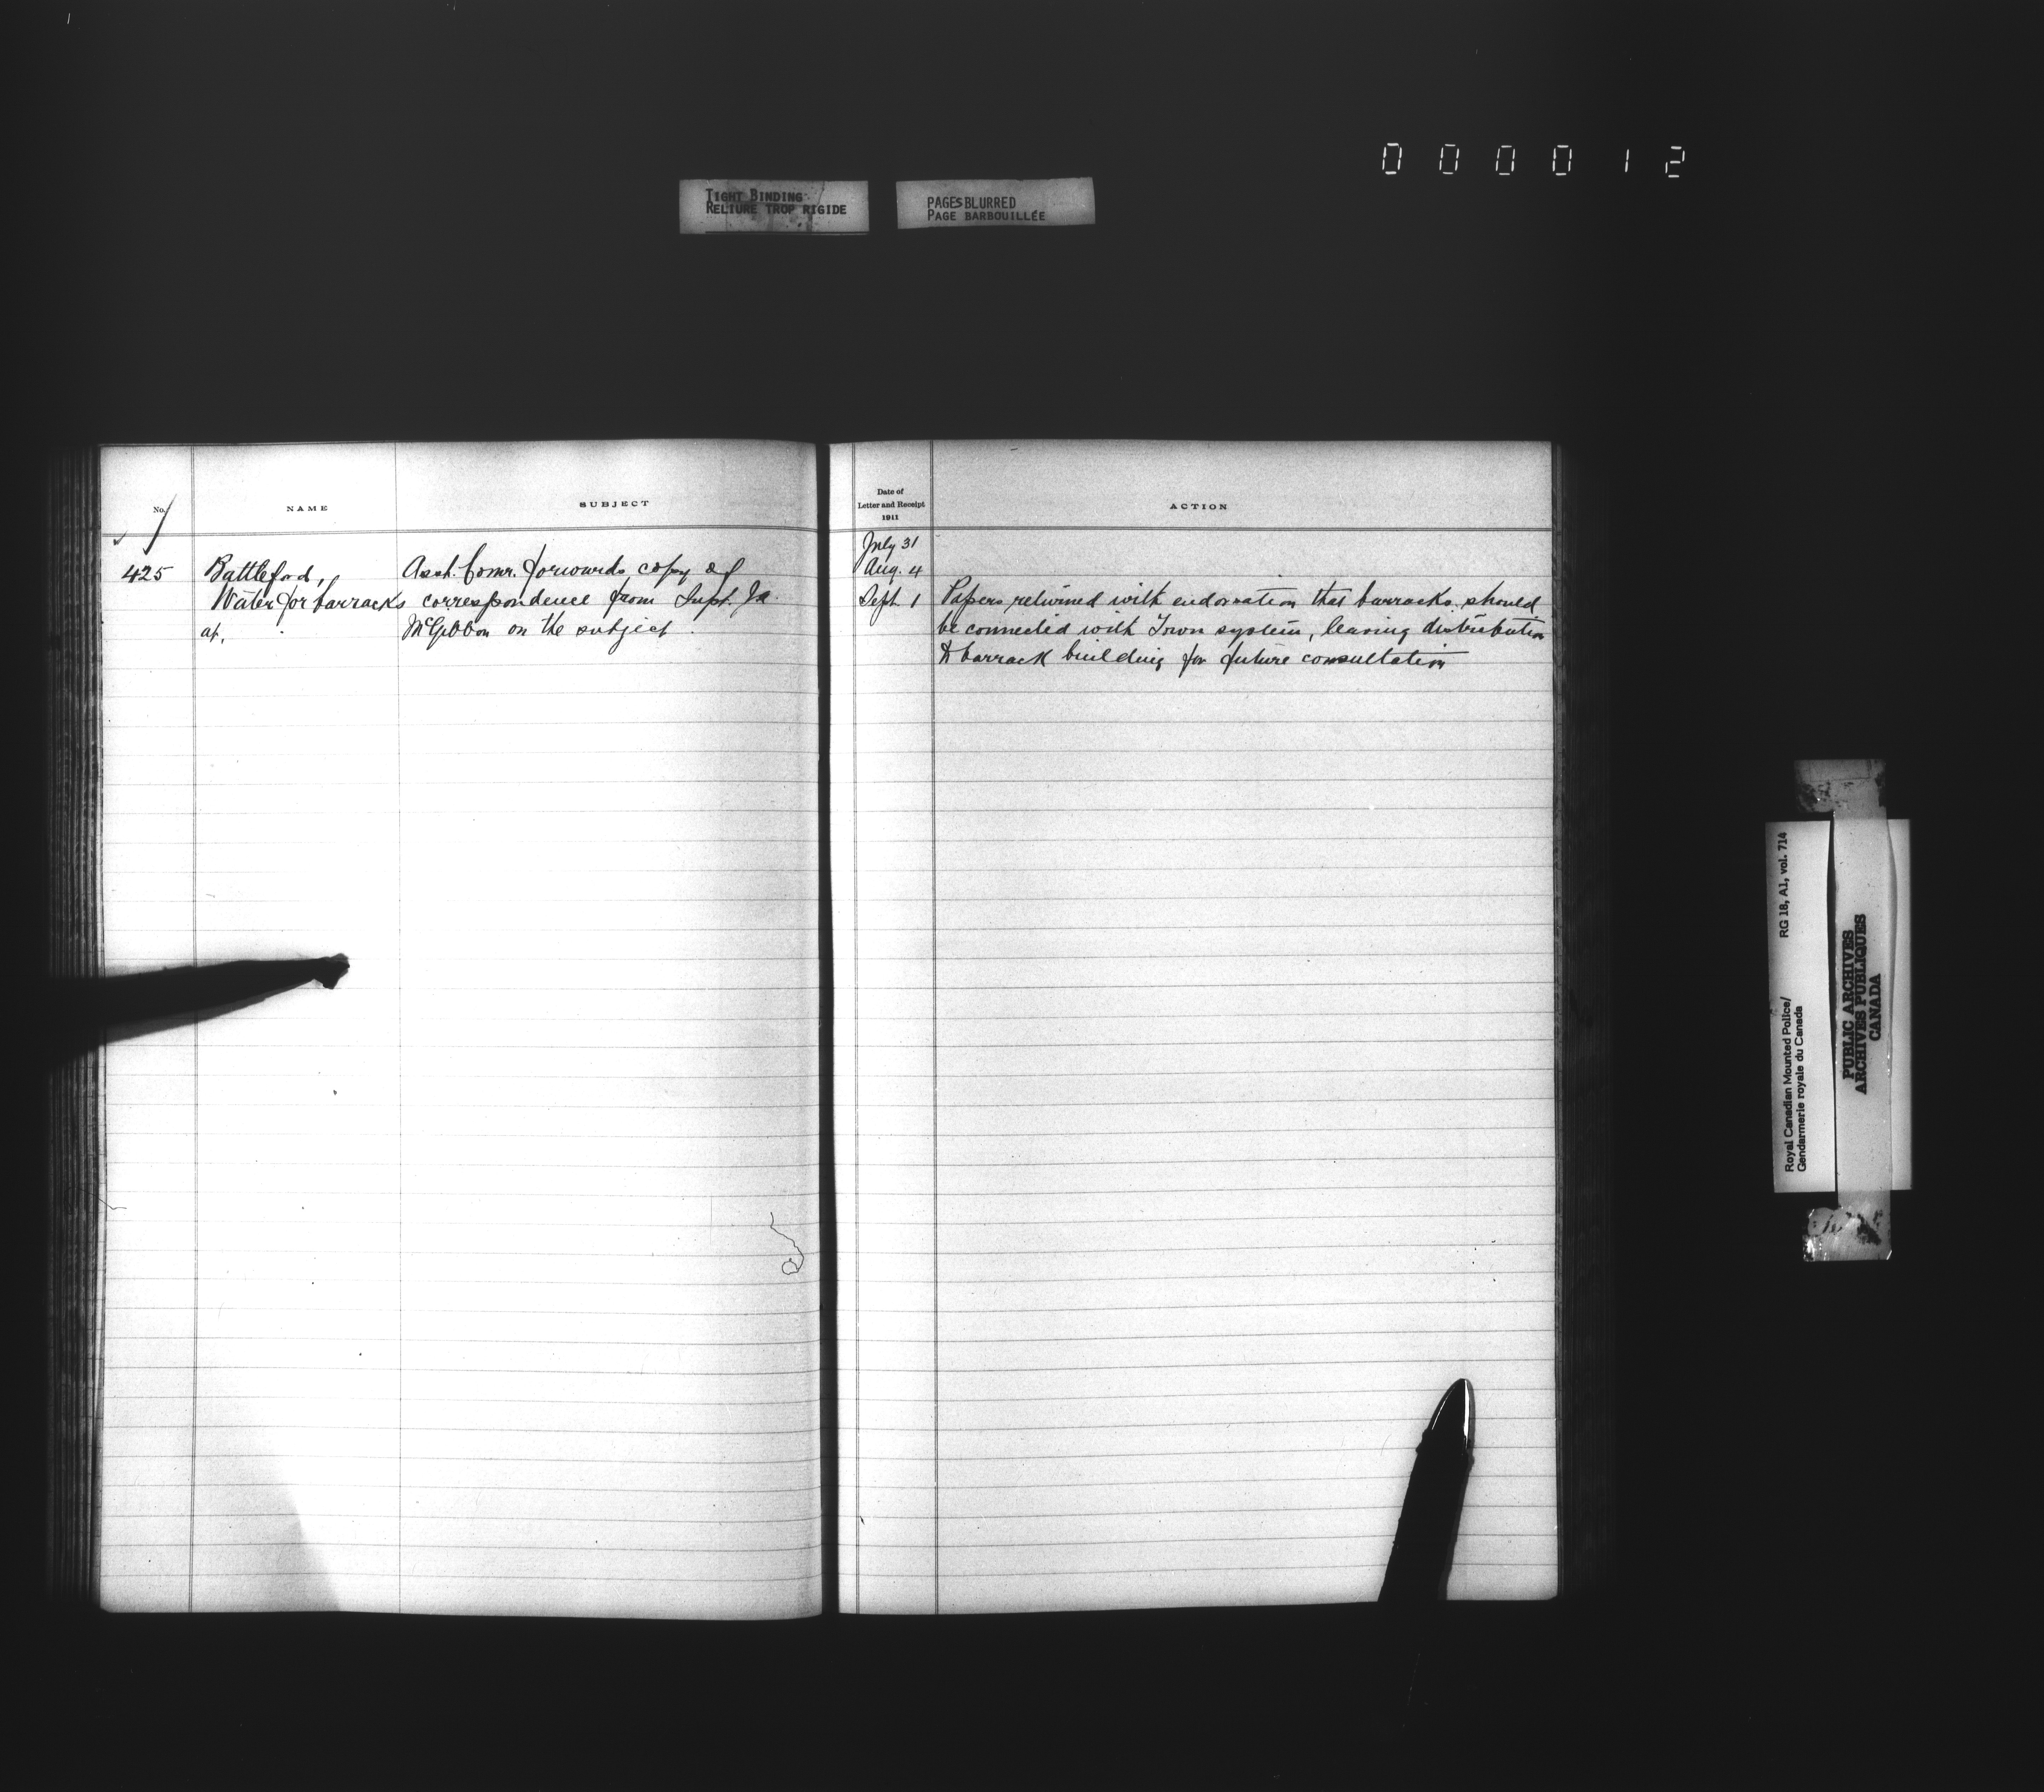 000012
TIGHT BINDING
RELIURE TROP RIGIDE
PAGES BLURRED
PAGE BARBOUILLÉE
No.
NAME
SUBJECT
425
Battleford,
Water for barracks
at.
Asst. Comr. forwards copy of
correspondence from Supt. J.A.
McGibbon on the subject.
Date of
Letter and Receipt
1911
ACTION
July 31
Aug. 4
Sept. 1
Papers returned with endorsation that barracks should
be connected with Town system, leaving distribution
to barrack building for future consultation
Royal Canadian Mounted Police/
Gendarmerie royale du Canada
RG 18, A1, vol. 714
PUBLIC ARCHIVES
ARCHIVES PUBLIQUES
CANADA